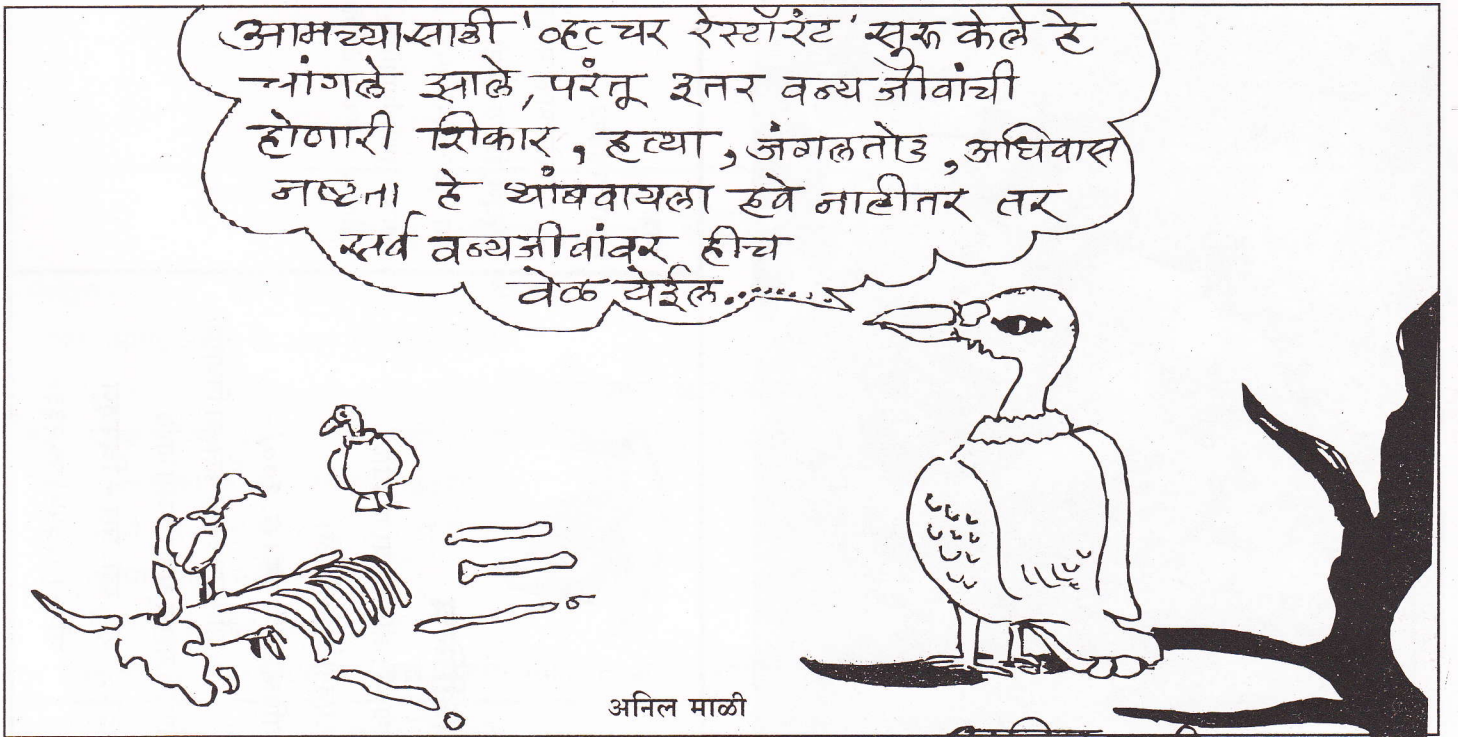 आमच्यासाठी 'व्हल्चर रेस्टॉरंट' सुरू केले हे
चांगले झाले, परंतू इतर वन्य जीवांची
होणारी शिकार, हत्या, जंगलतोड, अधिवास
नष्टता हे थांबवायला हवे नाहीतर तर
सर्व वन्यजीवांवर हीच
वेळ येईल.......
अनिल माळी